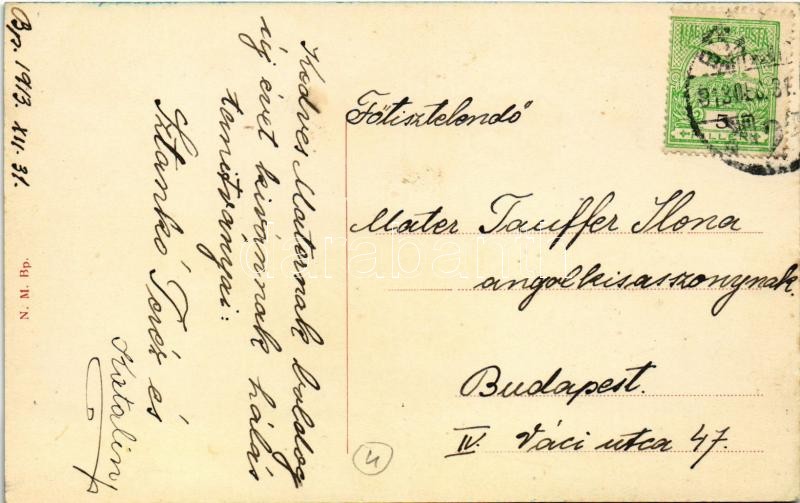 Bp. 1913. XII. 31.
Kedves Maternak boldog
új évet kívánnak hálás
tanítványai:
Sztankó Teréz és
Katalin
N. M. Bp.
Főtisztelendő
Mater Tauffer Ilona
angolkisasszonynak.
Budapest.
IV. Váci utca 47.
5
FILLÉR
913 DEC. 31.
4
darabanth